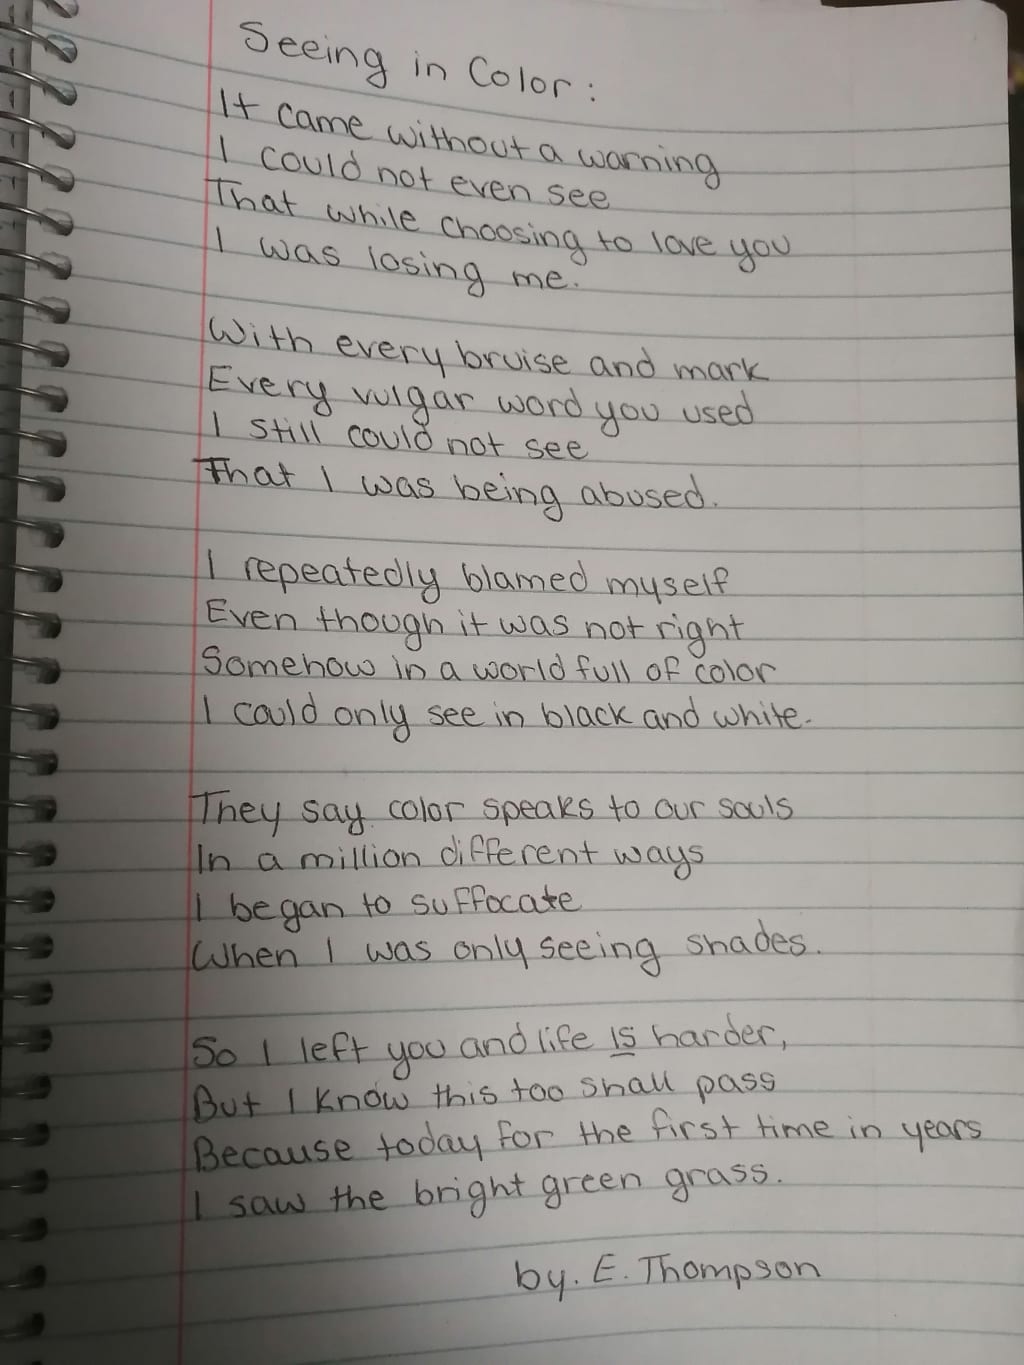 Seeing in Color:
It came without a warning
I could not even see
That while choosing to love you
I was losing me.
With every bruise and mark
Every vulgar word you used
I still could not see
That I was being abused.
I repeatedly blamed myself
Even though it was not right
Somehow in a world full of color
I could only see in black and white.
They say color speaks to our souls
In a million different ways
I began to suffocate
When I was only seeing shades.
So I left you and life is harder,
But I know this too shall pass
Because today for the first time in years
I saw the bright green grass.
by. E. Thompson